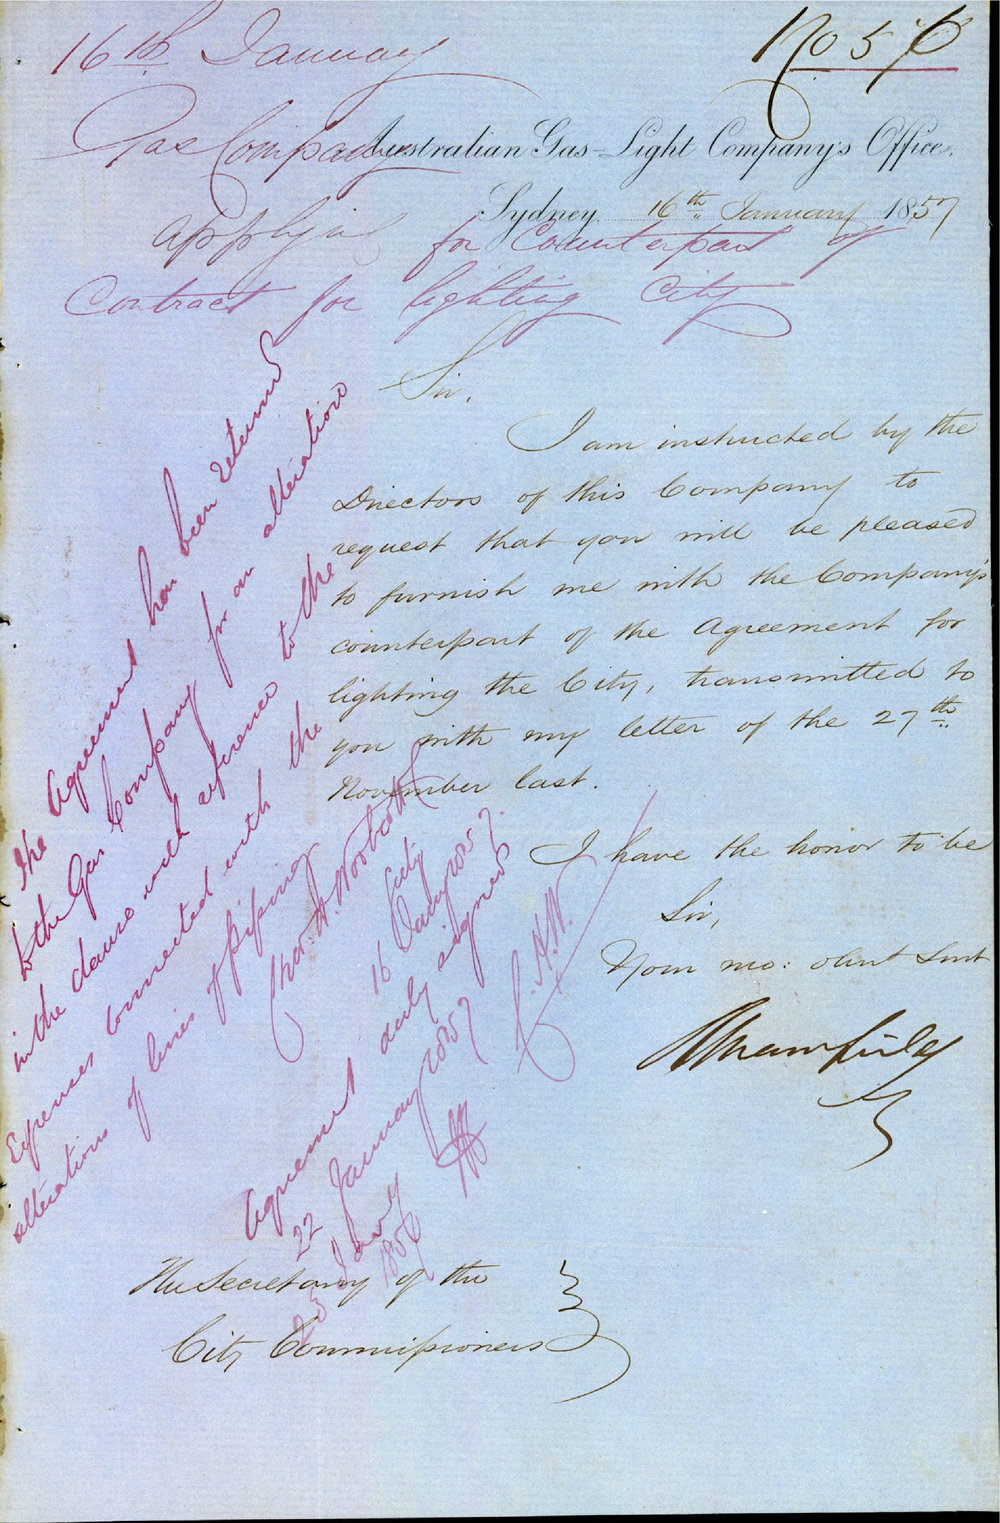 16th January
No 56
Gas Company
Australian Gas-Light Company's Office.
Sydney 16th January 1857
applying for Counterpart of
Contract for lighting City
Sir,
I am instructed by the
Directors of this Company to
request that you will be pleased
to furnish me with the Company's
counterpart of the Agreement for
lighting the City, transmitted to
you with my letter of the 27th
November last.
I have the honor to be
Sir,
Your mo: obnt Svnt
The Secretary of the
City Commissioners
The Agreement has been returned
to the Gas Company for an alteration
in the clause with reference to the
Expenses connected with the
alterations of lines of piping
Chas. H. Woolcott
City
16 Jany 1857.
Agreement duly signed
22 January 1857
C.H.W.
23 Jany